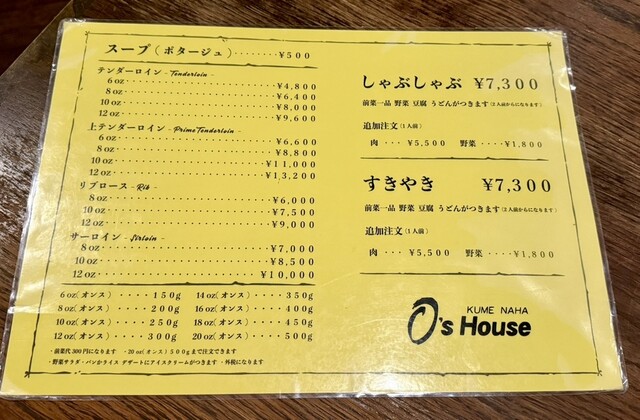 スープ(ポタージュ)········¥500
テンダーロイン - Tenderloin -
6 oz ¥4,800
8 oz ¥6,400
10 oz ¥8,000
12 oz ¥9,600
上テンダーロイン - Prime Tenderloin -
6 oz ¥6,600
8 oz ¥8,800
10 oz ¥11,000
12 oz ¥13,200
リブロース - Rib -
8 oz ¥6,000
10 oz ¥7,500
12 oz ¥9,000
サーロイン - Sirloin -
8 oz ¥7,000
10 oz ¥8,500
12 oz ¥10,000
6 oz(オンス)·····150g 14 oz(オンス)····350g
8 oz(オンス)·····200g 16 oz(オンス)····400g
10 oz(オンス)····250g 18 oz(オンス)····450g
12 oz(オンス)····300g 20 oz(オンス)····500g
・前菜代300円になります ・20oz(オンス)500gまで注文できます
・野菜サラダ・パンかライス デザートにアイスクリームがつきます ・外税になります
しゃぶしゃぶ ¥7,300
前菜一品 野菜 豆腐 うどんがつきます(2人前からになります)
追加注文(1人前)
肉 ··· ¥5,500 野菜 ···· ¥1,800
すきやき ¥7,300
前菜一品 野菜 豆腐 うどんがつきます(2人前からになります)
追加注文(1人前)
肉 ··· ¥5,500 野菜 ···· ¥1,800
KUME NAHA
O's House